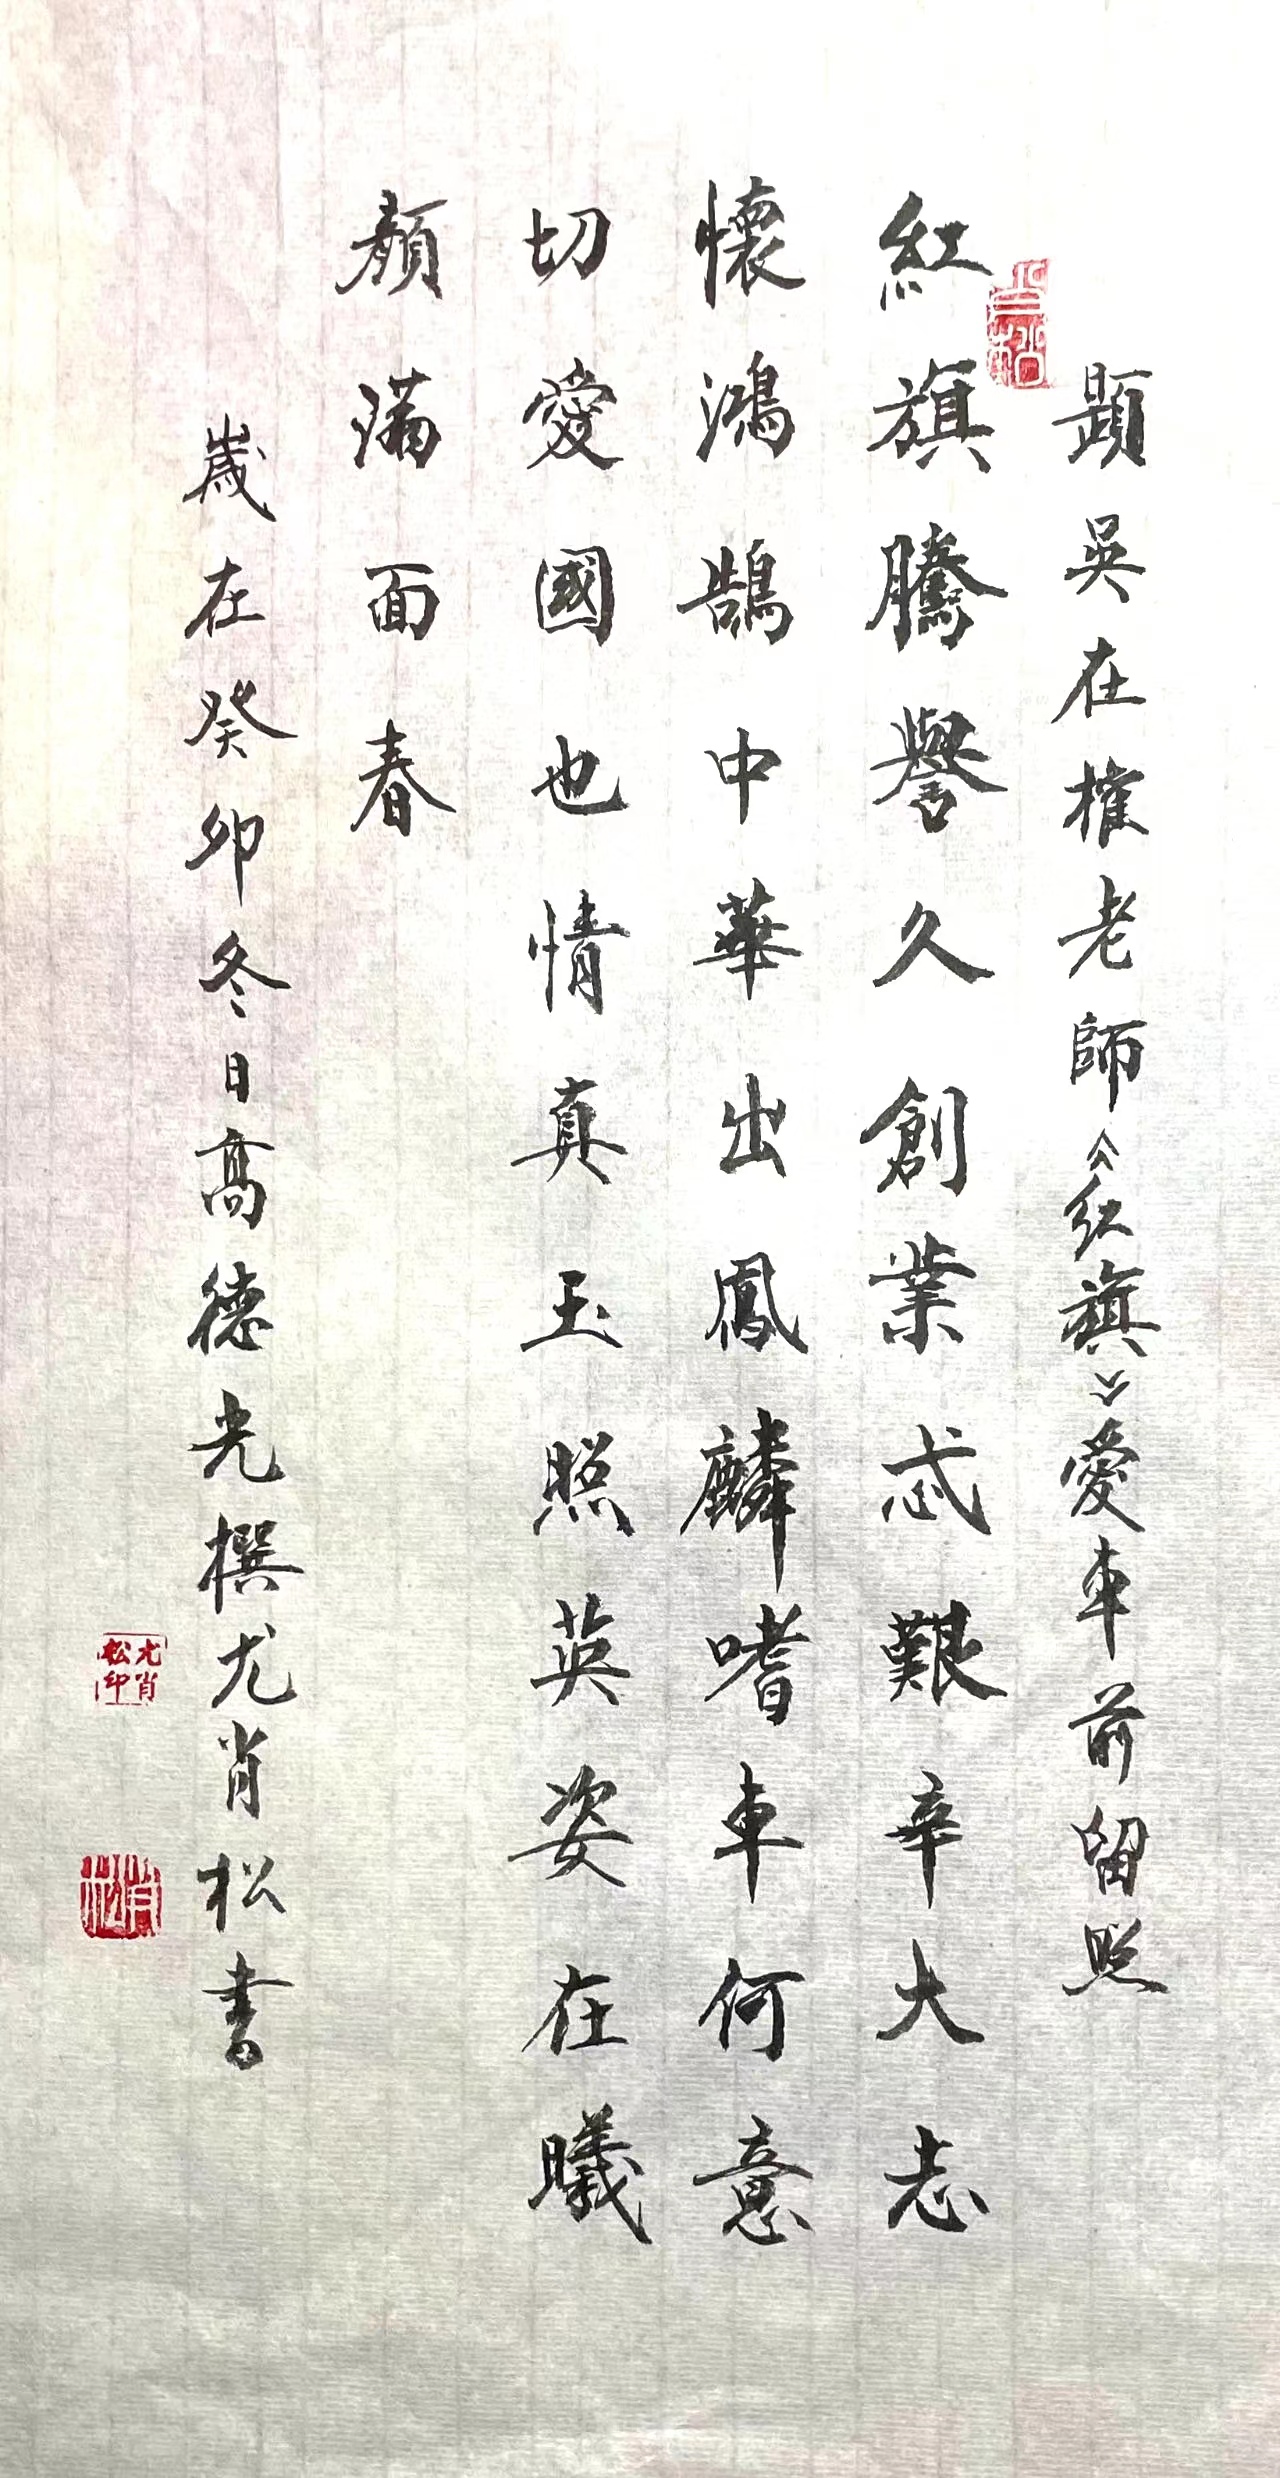 題吳在權老師《紅旗》愛車前留照
紅旗騰譽久創業忒艱辛大志
懷鴻鵠中華出鳳麟嗜車何意
切愛國也情真玉照英姿在曦
顏滿面春
歲在癸卯冬日高德光撰尤肖松書
肖松
尤肖松印